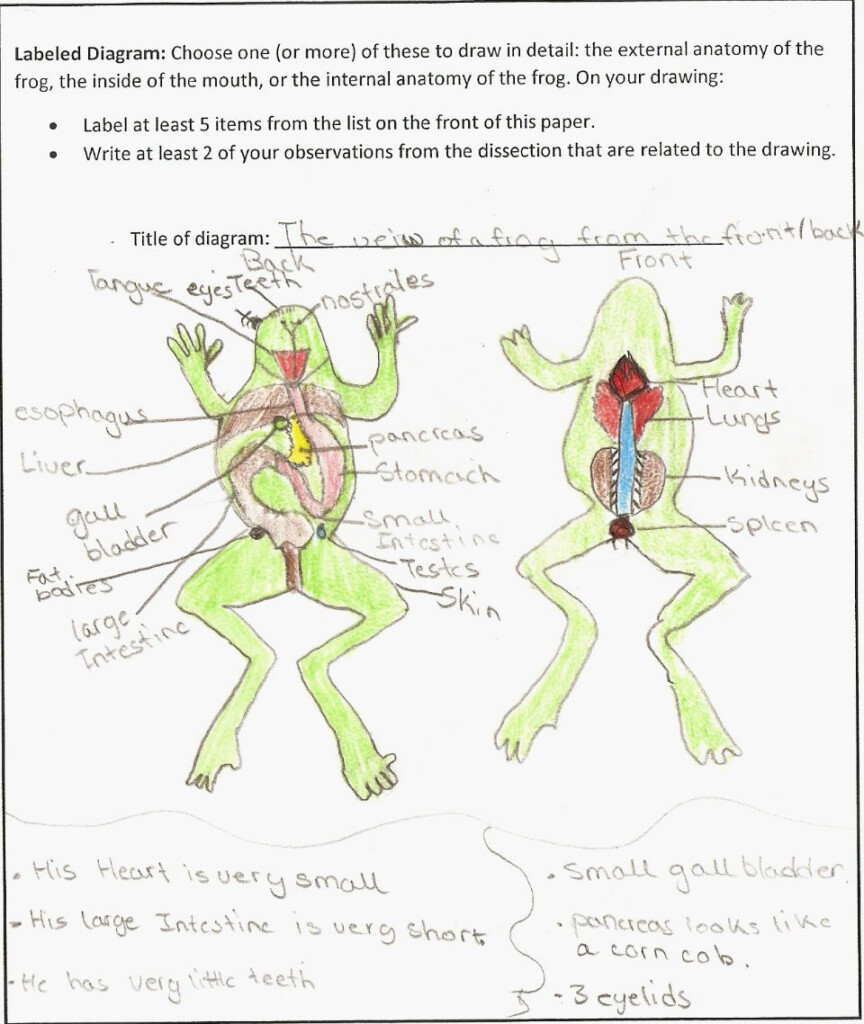 Labeled Diagram: Choose one (or more) of these to draw in detail: the external anatomy of the
frog, the inside of the mouth, or the internal anatomy of the frog. On your drawing:
• Label at least 5 items from the list on the front of this paper.
• Write at least 2 of your observations from the dissection that are related to the drawing.
Title of diagram: The veiw of a frog from the front/back
Back
Front
Tangue
eyes
Teeth
nostriles
esophagus
Liver
gall
bladder
Fat
bodies
large
Intestine
pancreas
Stomach
Small
Intestine
Testes
Skin
Heart
Lungs
Kidneys
Spleen
• His Heart is very small
- His large Intestine is very short
- He has very little teeth
• small gall bladder
• pancreas looks like
a corn cob.
- 3 eyelids